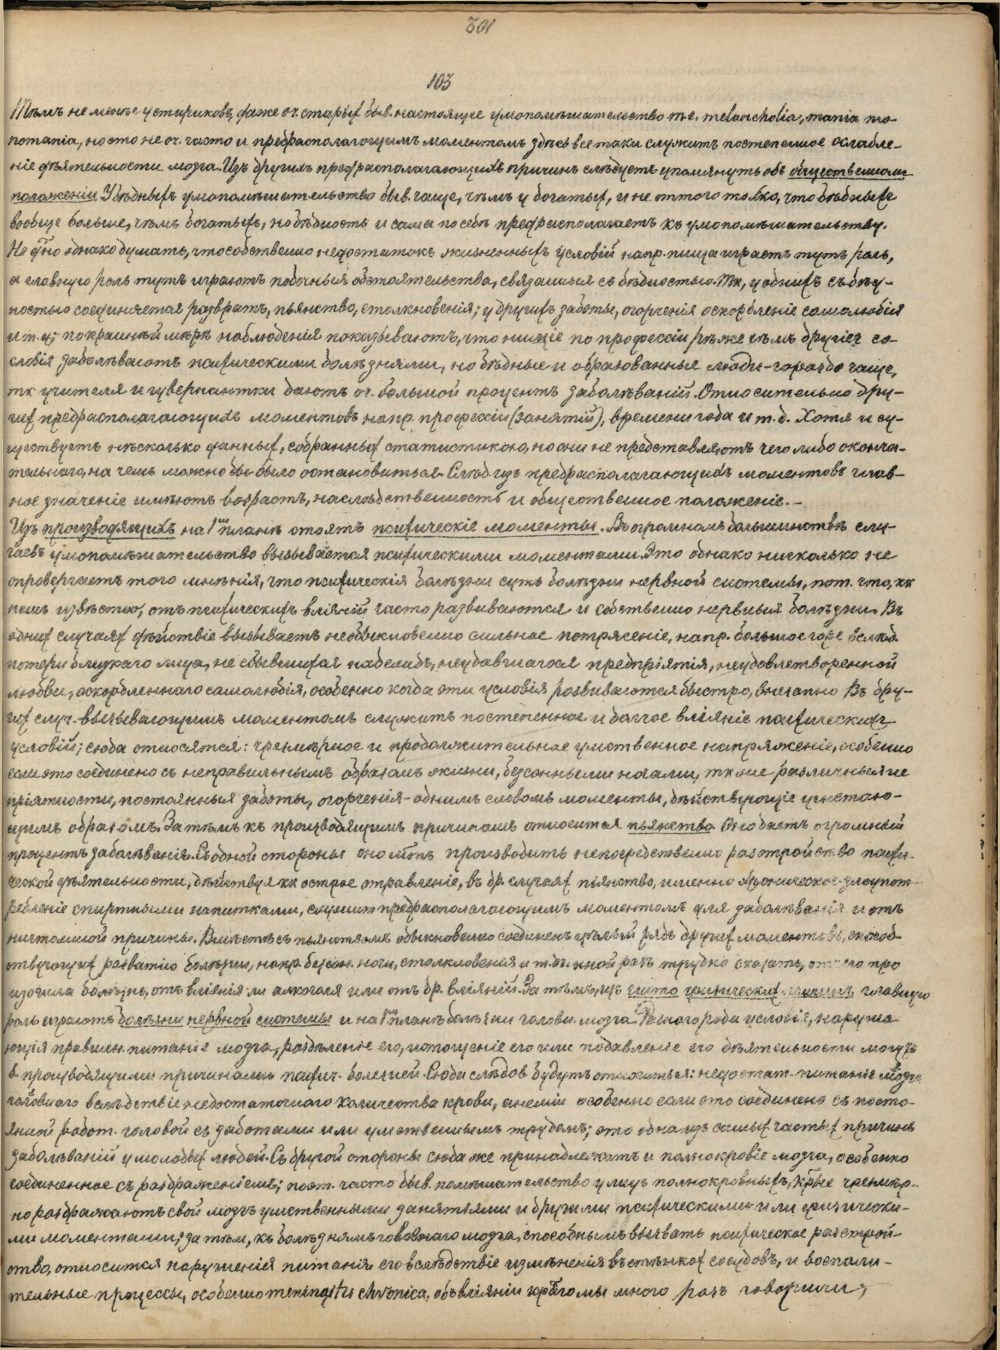 301
103
Тѣмъ не менѣе у стариковъ, даже оч. старых быв. настоящее умопомѣшательство т. е. melancholia, mania mo-
nomania, но это не оч. часто и предрасполагающимъ моментомъ здѣсь все таки служитъ постепенное ослабле-
ніе дѣятельности мозга. Изъ другихъ предрасполагающихъ причинъ слѣдуетъ упомянуть объ общественномъ
положеніи. У бѣдныхъ умопомѣшательство быв. чаще, чѣмъ у богатых, и не оттого только, что бѣдныхъ
вообще больше, чѣмъ богатыхъ, но бѣдность и сама по себѣ предрасполагаетъ къ умопомѣшательству.
Не однако думать, что собственно недостатокъ жизненныхъ условій напр. пища играетъ тутъ роль,
а главную роль тутъ играютъ побочныя обстоятельства, связанныя съ бѣдностью. Тк, у однихъ съ бѣд-
ностью соединяется развратъ, пьянство, столкновенія; у другихъ заботы, огорченія оскорбленіе самолюбія
и т. д; по крайней мѣрѣ наблюденія показываютъ, что нищіе по профессіи рѣже чѣмъ другіе со
словія заболѣваютъ психическими болѣзнями, но бѣдные и образованные люди - гораздо чаще,
тк учителя и гувернантки даютъ оч. большой процентъ заболѣваній. Относительно дру-
гих предрасполагающихъ моментовъ напр. профессіи (занятій), времени года и т. д. Хотя и су-
ществуютъ нѣсколько данных, собранных статистикою, но они не представляютъ чего либо оконча-
тельнаго, на чемъ можно бы было остановиться. Слѣд. изъ предрасполагающихъ моментовъ глав-
ное значеніе имѣютъ возрастъ, наслѣдственность и общественное положеніе. -
Изъ производящихъ на 1мъ планѣ стоятъ психическіе моменты. Въ огромномъ большинствѣ слу-
чаевъ умопомѣшательство вызывается психическими моментами. Это однако нисколько не
опровергаетъ того мнѣнія, что психическія болѣзни суть болѣзни нервной системы, пот. что, кк
намъ извѣстно, отъ психическихъ вліяній часто развиваются и собственно нервныя болѣзни. Въ
одних случаях дѣйствіе вызываетъ необыкновенно сильное потрясеніе, напр. большое горе вслѣд.
потери близкаго лица, не сбывшихся надеждъ, неудавшагося предпріятія, неудовлетворенной
любви, оскорбленнаго самолюбія, особенно когда эти условія развиваются быстро, внезапно. Въ дру-
гих случ. вызывающимъ моментомъ служитъ постепенное и долгое вліяніе психическихъ
условій; сюда относятся: чрезмѣрное и продолжительное умственное напряженіе, особенно
если это соединено съ неправильнымъ образомъ жизни, безсонными ночами, тк же различныя не
пріятности, постоянныя заботы, огорченія - однимъ словомъ моменты, дѣйствующіе угнетаю-
щимъ образомъ. Затѣмъ къ производящимъ причинамъ относится пьянство. Оно даетъ огромный
процентъ заболѣванія. Съ одной стороны оно производить непосредственно разстройство психи-
ческой дѣятельности, дѣйствуя кк острое отравленіе, въ др. случаях пьянство, именно хроническое злоупот-
ребленіе спиртными напитками, служитъ предрасполагающимъ моментомъ для заболѣванія и отъ
ничтожной причины. Вмѣстѣ съ пьянствомъ обыкновенно соединенъ цѣлый рядъ других моментовъ, способ-
ствующих развитію болѣзни, напр. безсон. ночи, столкновенія и т. д. иной разъ трудно сказать, отчего про
изошла болѣзнь, отъ вліянія ли алкоголя или отъ др. вліяній. За тѣмъ изъ чисто физических причинъ главную
роль играютъ болѣзни нервной системы и на 1мъ планѣ болѣзни голови. мозга. Разнаго рода условія, наруша
ющія правильн. питаніе мозга, раздѣленіе его, истощеніе его или подавленіе его дѣятельности могутъ
б. производящими причинами психич. болезней. Сюда слѣдов. будутъ относиться: недостат. питаніе мозга
головнаго вслѣдствіе недостаточнаго количества крови, анеміи особенно если это соединено съ посто-
янной работ. головой съ заботами или умственнымъ трудомъ; это одна изъ самых частых причинъ
заболѣваній у молодых людей. Съ другой стороны сюда же принадлежитъ и полнокровіе мозга, особенно
соединенное съ раздраженіемъ; поэт. часто быв. помѣшательство у лицъ полнокровныхъ, чрезмѣр-
но раздражаютъ свой мозгъ умственными занятіями и другими психическими или физически-
ми моментами; за тѣм, къ болѣзнямъ головнаго мозга, способнымъ вызвать психическое разстрой-
ство, относится нарушенія питанія его вслѣдствіе измѣненія въ стѣнках сосудовъ, и воспали-
тельные процессы, особенно meningitis chronica, объ вліяніи мы много разъ говорили;